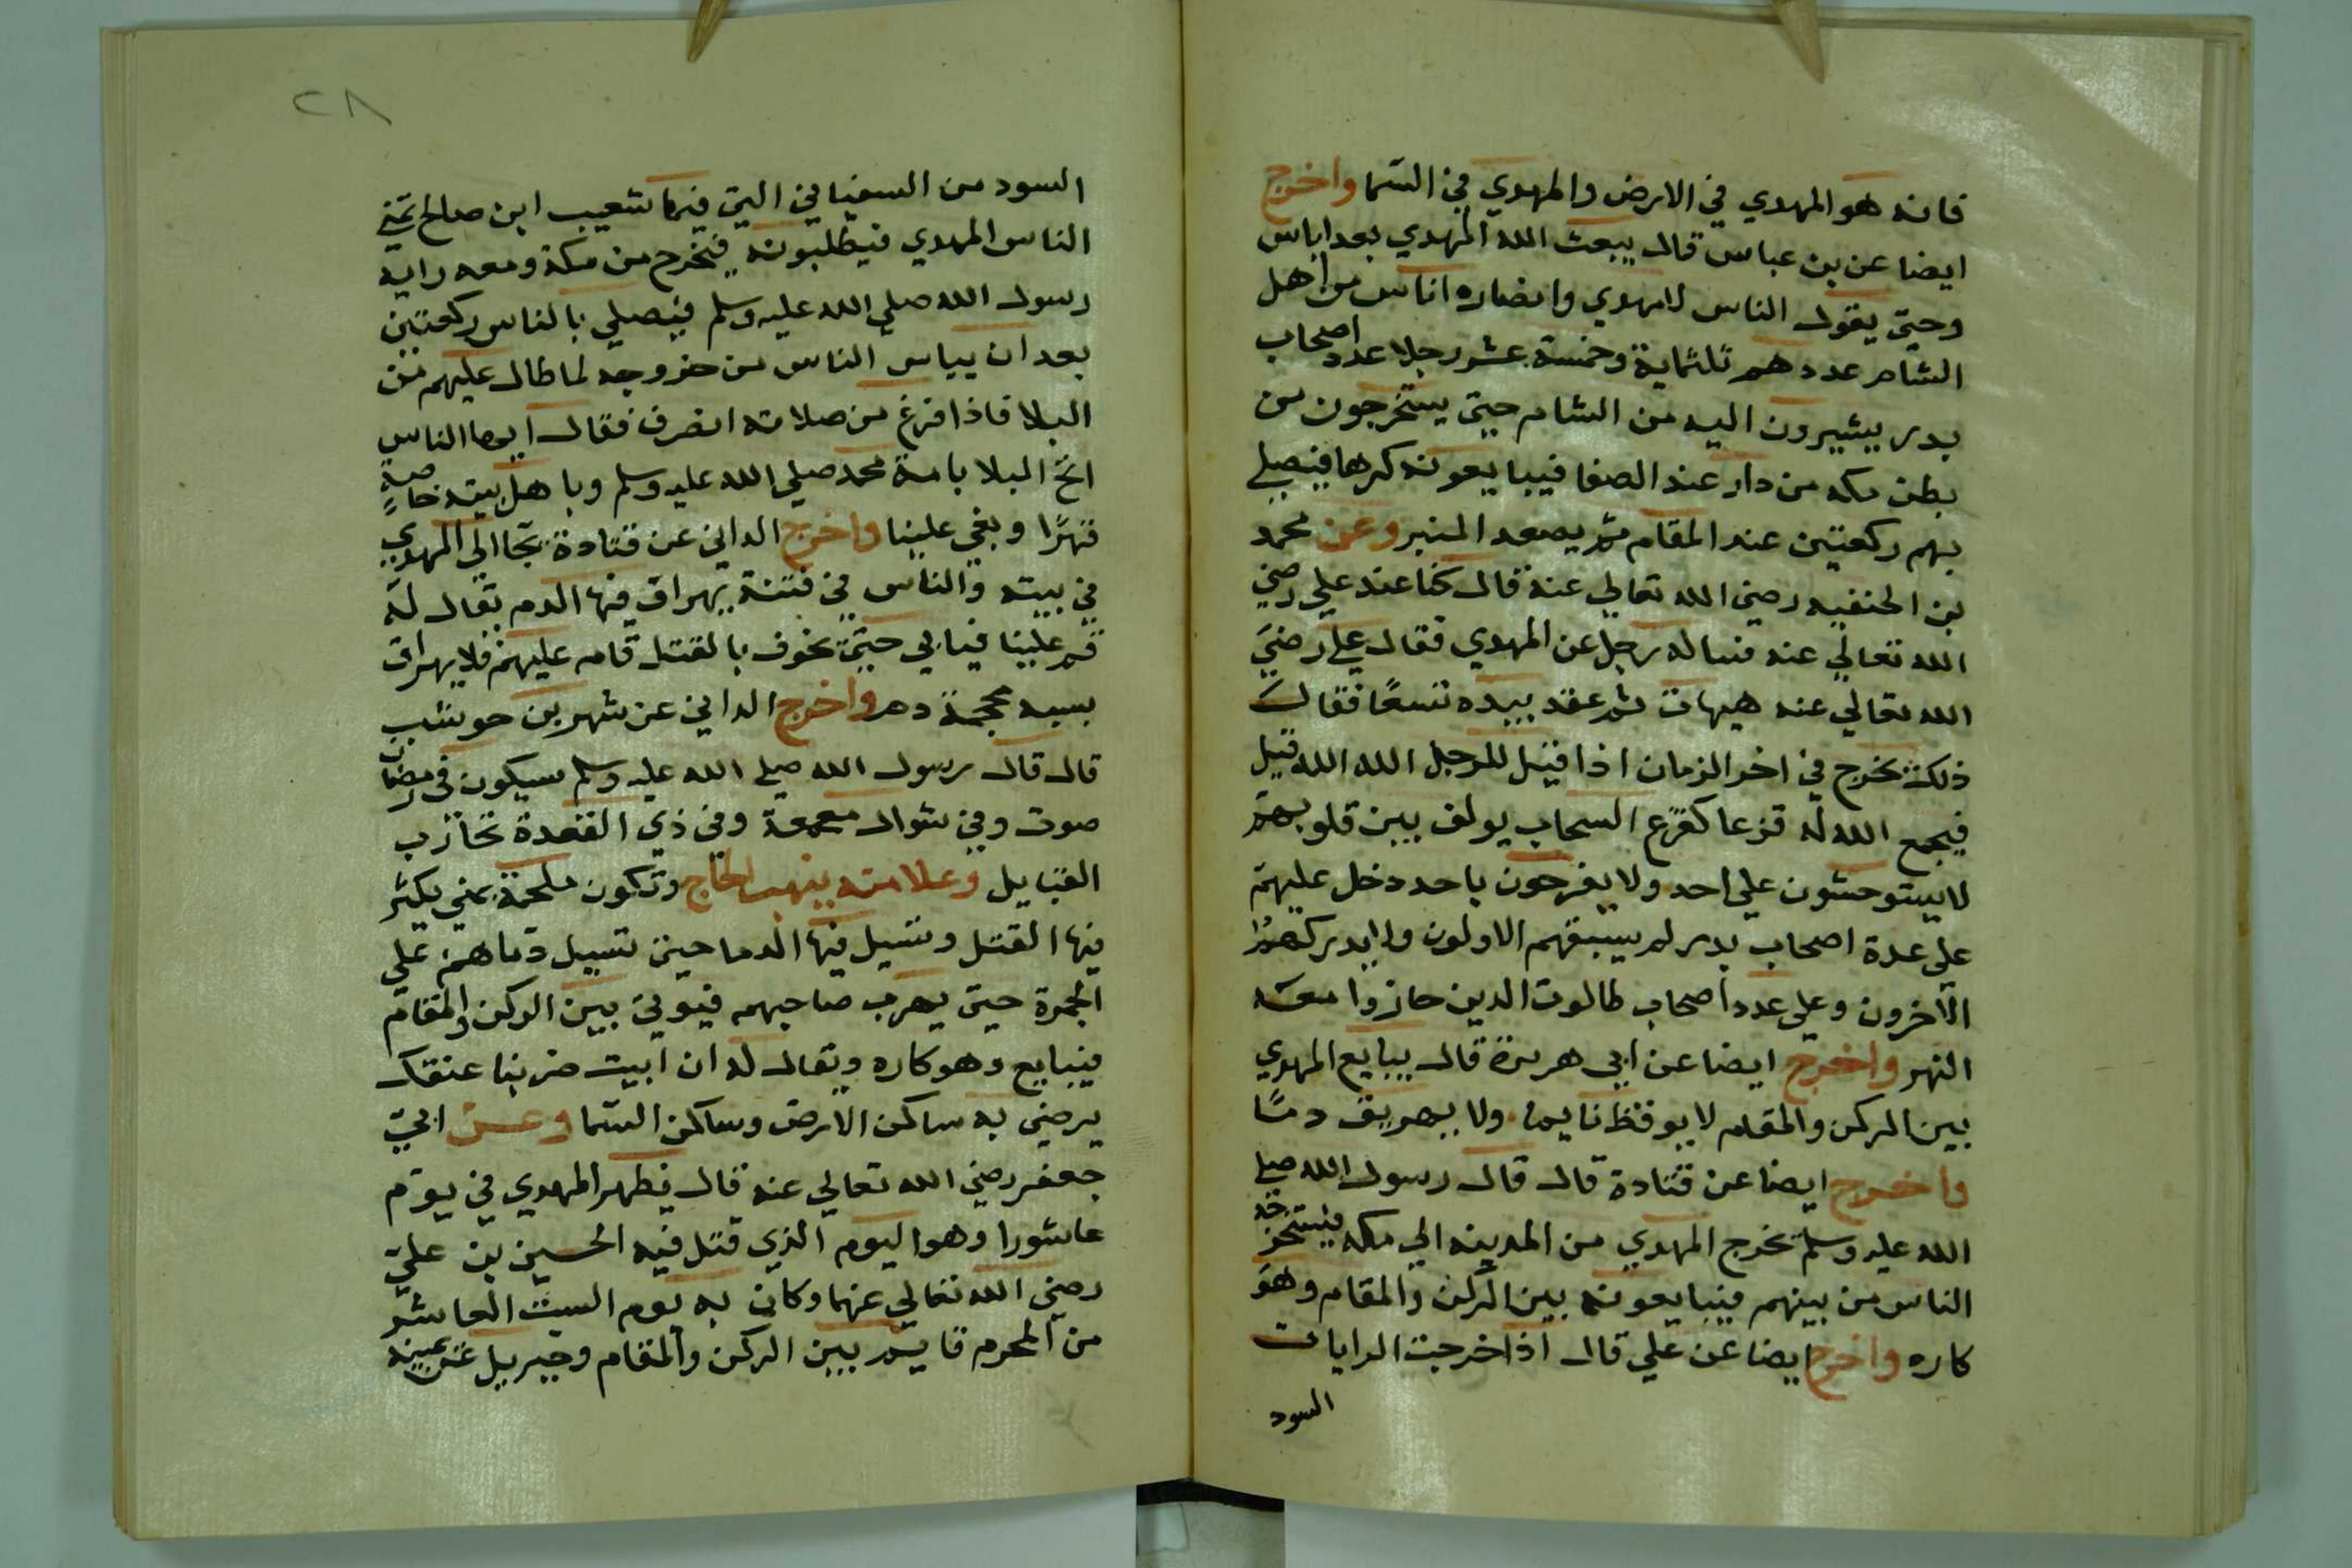 فانه هو المهدي في الارض والمهدي في السما واخرج
ايضا عن بن عباس قال يبعث الله المهدي بعد اياس
وحتي يقول الناس لامهدي وانصاره اناس من اهل
الشام عددهم ثلثماية وخمسة عشر رجلا عدد اصحاب
بدر يشيرون اليه من الشام حتي يستخرجون من
بطن مكه من دار عند الصفا فيبايعونه كرها فيصلي
بهم ركعتين عند المقام ثم يصعد المنبر وعن محمد
بن الحنفيه رضي الله تعالي عنه قال كنا عند علي رضي
الله تعالي عنه فساله رجل عن المهدي فقال علي رضي
الله تعالي عنه هيهات ثم عقد بيده تسعا فقال
ذلك يخرج في اخر الزمان اذا قيل للرجل الله الله قتل
فيجمع الله له قزعا كقزع السحاب يولف بين قلوبهم
لا يستوحشون علي احد ولا يفرحون باحد دخل عليهم
علي عدة اصحاب بدر لم يسبقهم الاولون ولا يدركهم
الاخرون وعلي عدد اصحاب طالوت الدين جازوا معه
النهر واخرج ايضا عن ابي هريرة قال يبايع المهدي
بين الركن والمقام لا يوقظ نايما ولا يهريق دما
واخرج ايضا عن قتادة قال قال رسول الله صلي
الله عليه وسلم يخرج المهدي من المدينه الي مكه فيستخرجه
الناس من بينهم فيبايعونه بين الركن والمقام وهو
كاره واخرج ايضا عن علي قال اذا خرجت الرايات
السود
٢٨
السود من السفياني التي فيها شعيب ابن صالح تمني
الناس المهدي فيطلبونه فيخرج من مكة ومعه راية
رسول الله صلي الله عليه وسلم فيصلي بالناس ركعتين
بعد ان يياس الناس من خروجه لما طال عليهم من
البلا فاذا فرغ من صلاته انصرف فقال ايها الناس
الح البلا بامة محمد صلي الله عليه وسلم وباهل بيته خاصة
قهرا وبغي علينا واخرج الداني عن قتادة يجا الي المهدي
في بيته والناس في فتنة يهراق فيها الدم يقال له
قم علينا فيابي حتي يخوف بالقتل قام عليهم فلا يهراق
بسببه محجمة دم واخرج الداني عن شهر بن حوشب
قال قال رسول الله صلي الله عليه وسلم سيكون في رمضان
صوت وفي شوال معمعة وفي ذي القعدة تحازب
القبايل وعلامته ينهب الحاج وتكون ملحمة بمني يكثر
فيها القتل وتسيل فيها الدما حين تسيل دماهم علي
الجمرة حتي يهرب صاحبهم فيوتي بين الركن والمقام
فيبايع وهو كاره ويقال له ان ابيت ضربنا عنقك
يرضي به ساكن الارض وساكن السما وعن ابي
جعفر رضي الله تعالي عنه قال يظهر المهدي في يوم
عاشورا وهو اليوم الذي قتل فيه الحسين بن علي
رضي الله تعالي عنهما وكاني به يوم السبت العاشر
من المحرم قايم بين الركن والمقام وجبريل عن يمينه